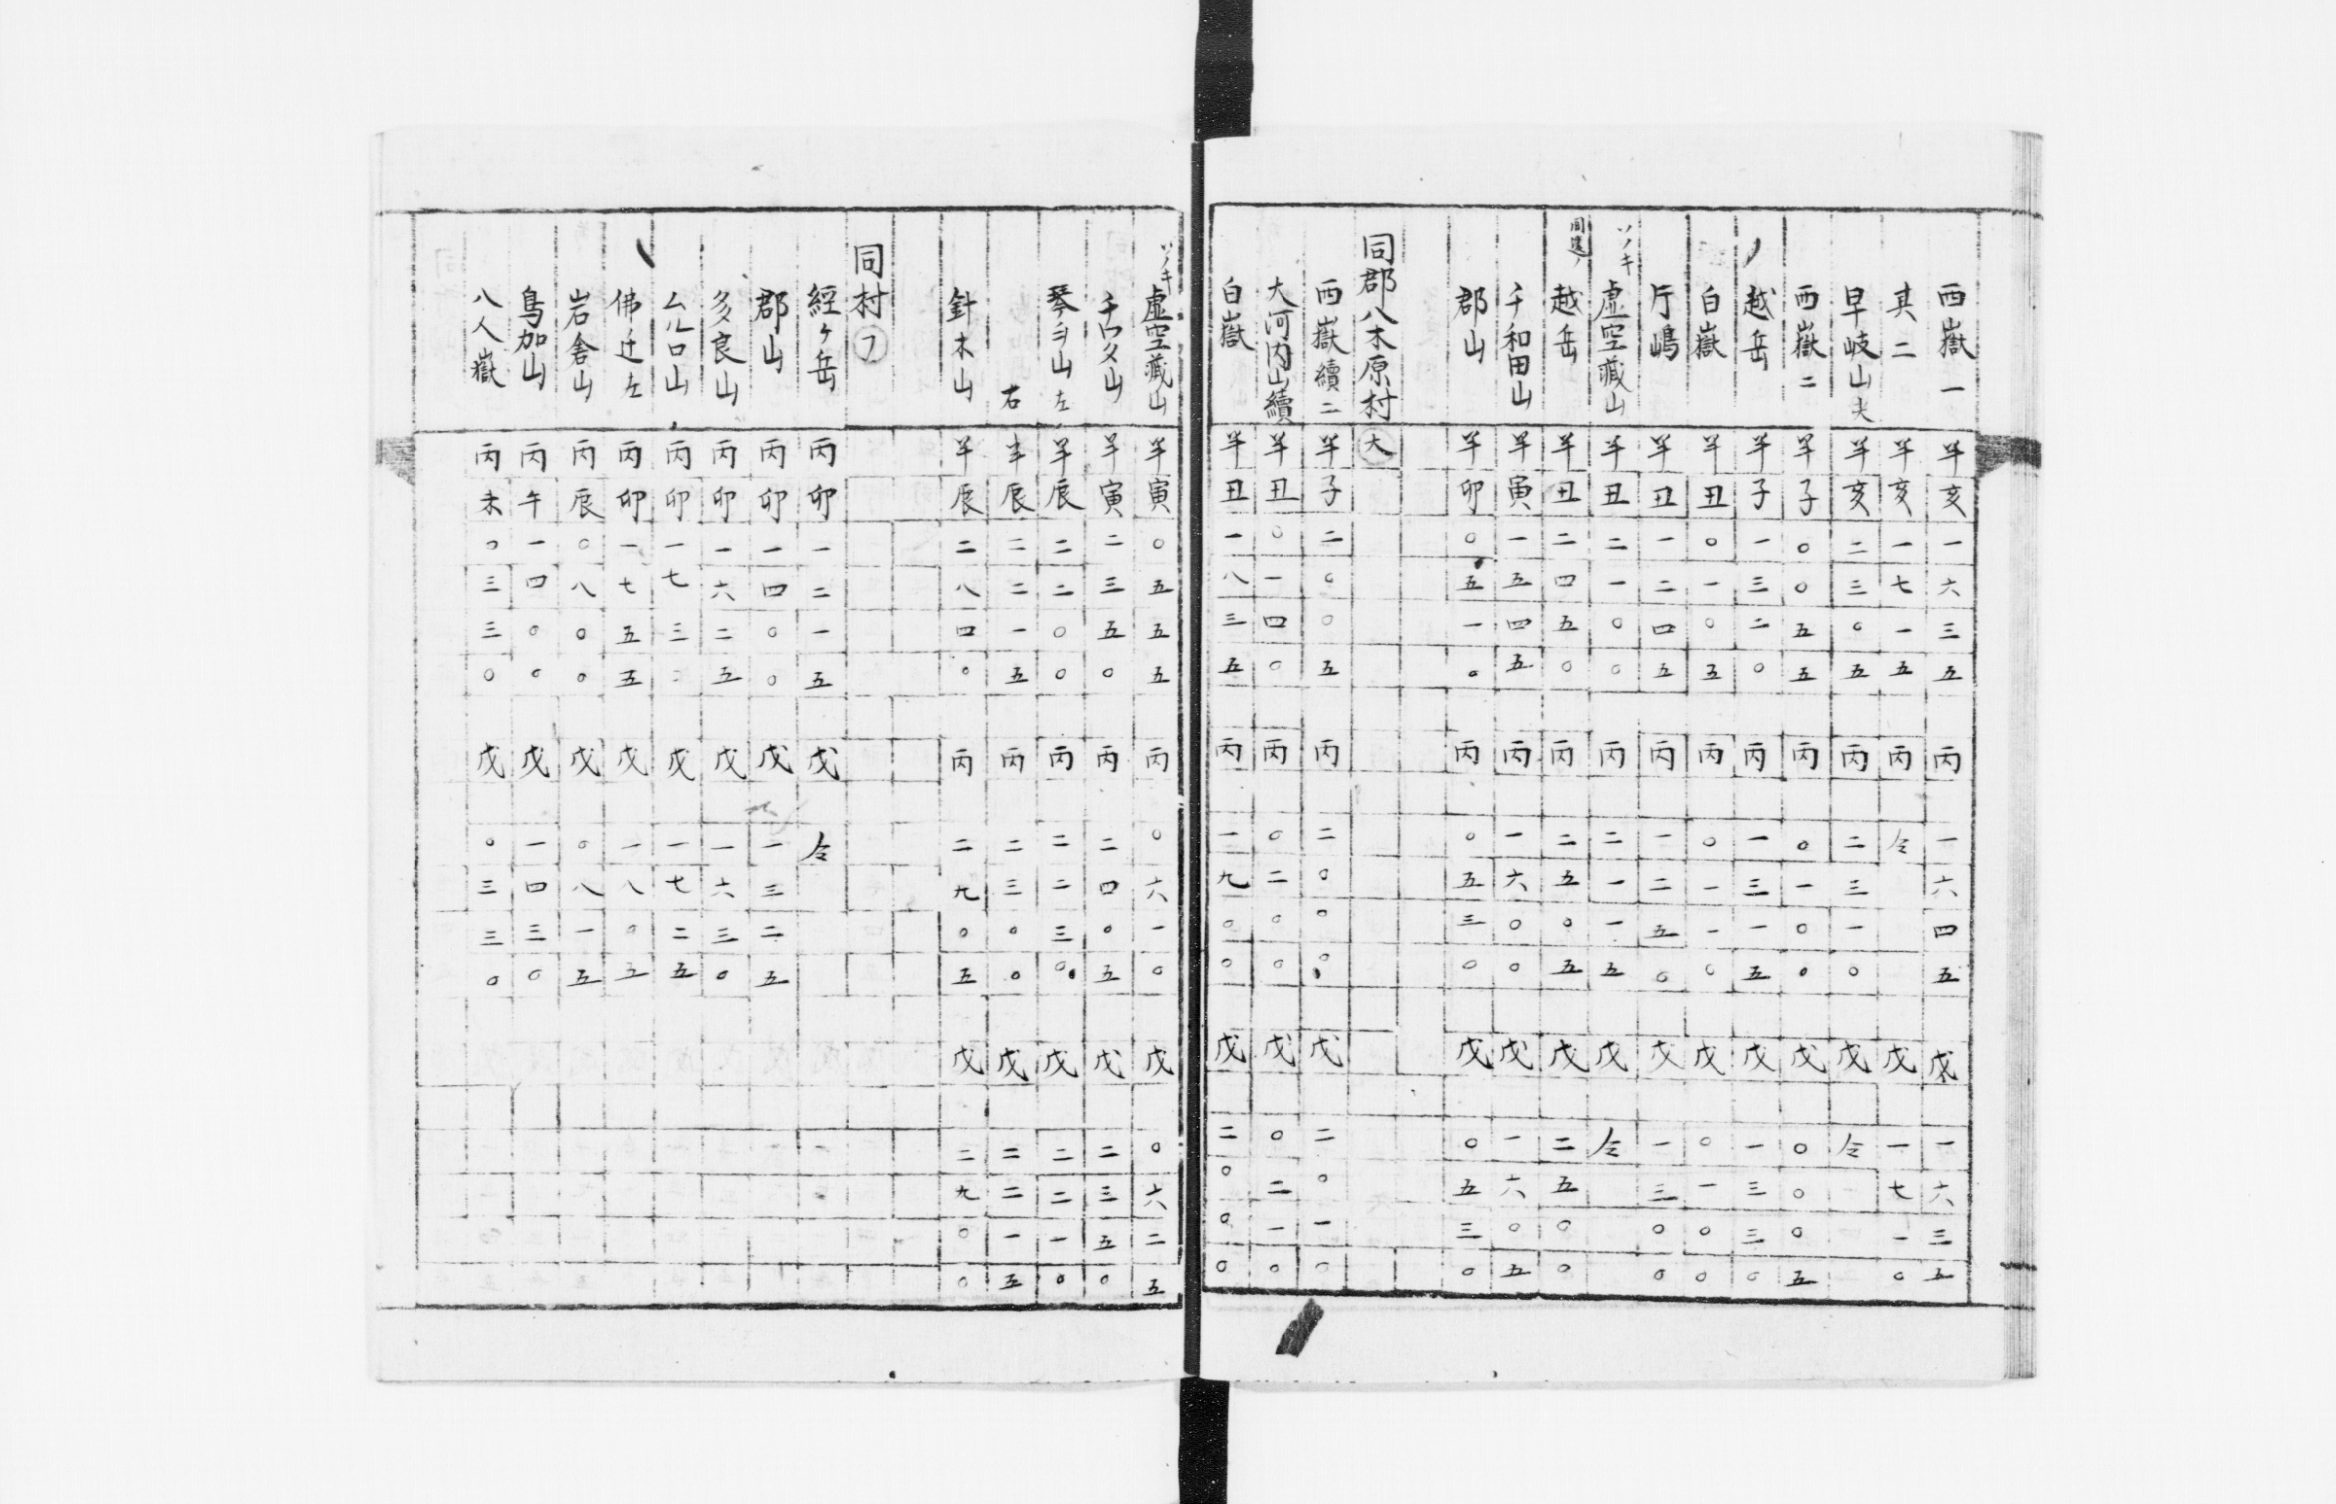 西嶽一 羊亥一六三五 丙一六四五 戊一六三五
其二 羊亥一七一五 丙仝 戊一七一〇
早岐山大 羊亥二三〇五 丙二三一〇 戊仝
西嶽二 羊子〇〇五五 丙〇一〇〇 戊〇〇〇五
越岳 羊子一三二〇 丙一三一五 戊一三三〇
白嶽 羊丑〇一〇五 丙〇一一〇 戊〇一〇〇
片嶋 羊丑一二四五 丙一二五〇 戊一三〇〇
ソノキ虚空蔵山 羊丑二一〇〇 丙二一一五 戊仝
越岳 羊丑二四五〇 丙二五〇五 戊二五〇〇
千和田山 羊寅一五四五 丙一六〇〇 戊一六〇五
郡山 羊卯〇五一〇 丙〇五三〇 戊〇五三〇
同郡八木原村 大
西嶽續二 羊子二〇〇五 丙二〇〇〇 戊二〇一〇
大河内山續 羊丑〇一四〇 丙〇二〇〇 戊〇二一〇
白嶽 羊丑一八三五 丙一九〇〇 戊二〇〇〇
ソノキ虚空蔵山 羊寅〇五五五 丙〇六一〇 戊〇六二五
千ワタ山 羊寅二三五〇 丙二四〇五 戊二三五〇
琴ヲ山左 羊辰二二〇〇 丙二二三〇 戊二二一〇
右 羊辰二二一五 丙二三〇〇 戊二二一五
針木山 羊辰二八四〇 丙二九〇五 戊二九〇〇
同村 フ
經ヶ岳 丙卯一二一五 戊仝
郡山 丙卯一四〇〇 戊一三二五
多良山 丙卯一六二五 戊一六三〇
ムルロ山 丙卯一七三〇 戊一七二五
佛辻左 丙卯一七五五 戊一八〇五
岩舎山 丙辰〇八〇〇 戊〇八一五
鳥加山 丙午一四〇〇 戊一四三〇
八人嶽 丙未〇三三〇 戊〇三三〇